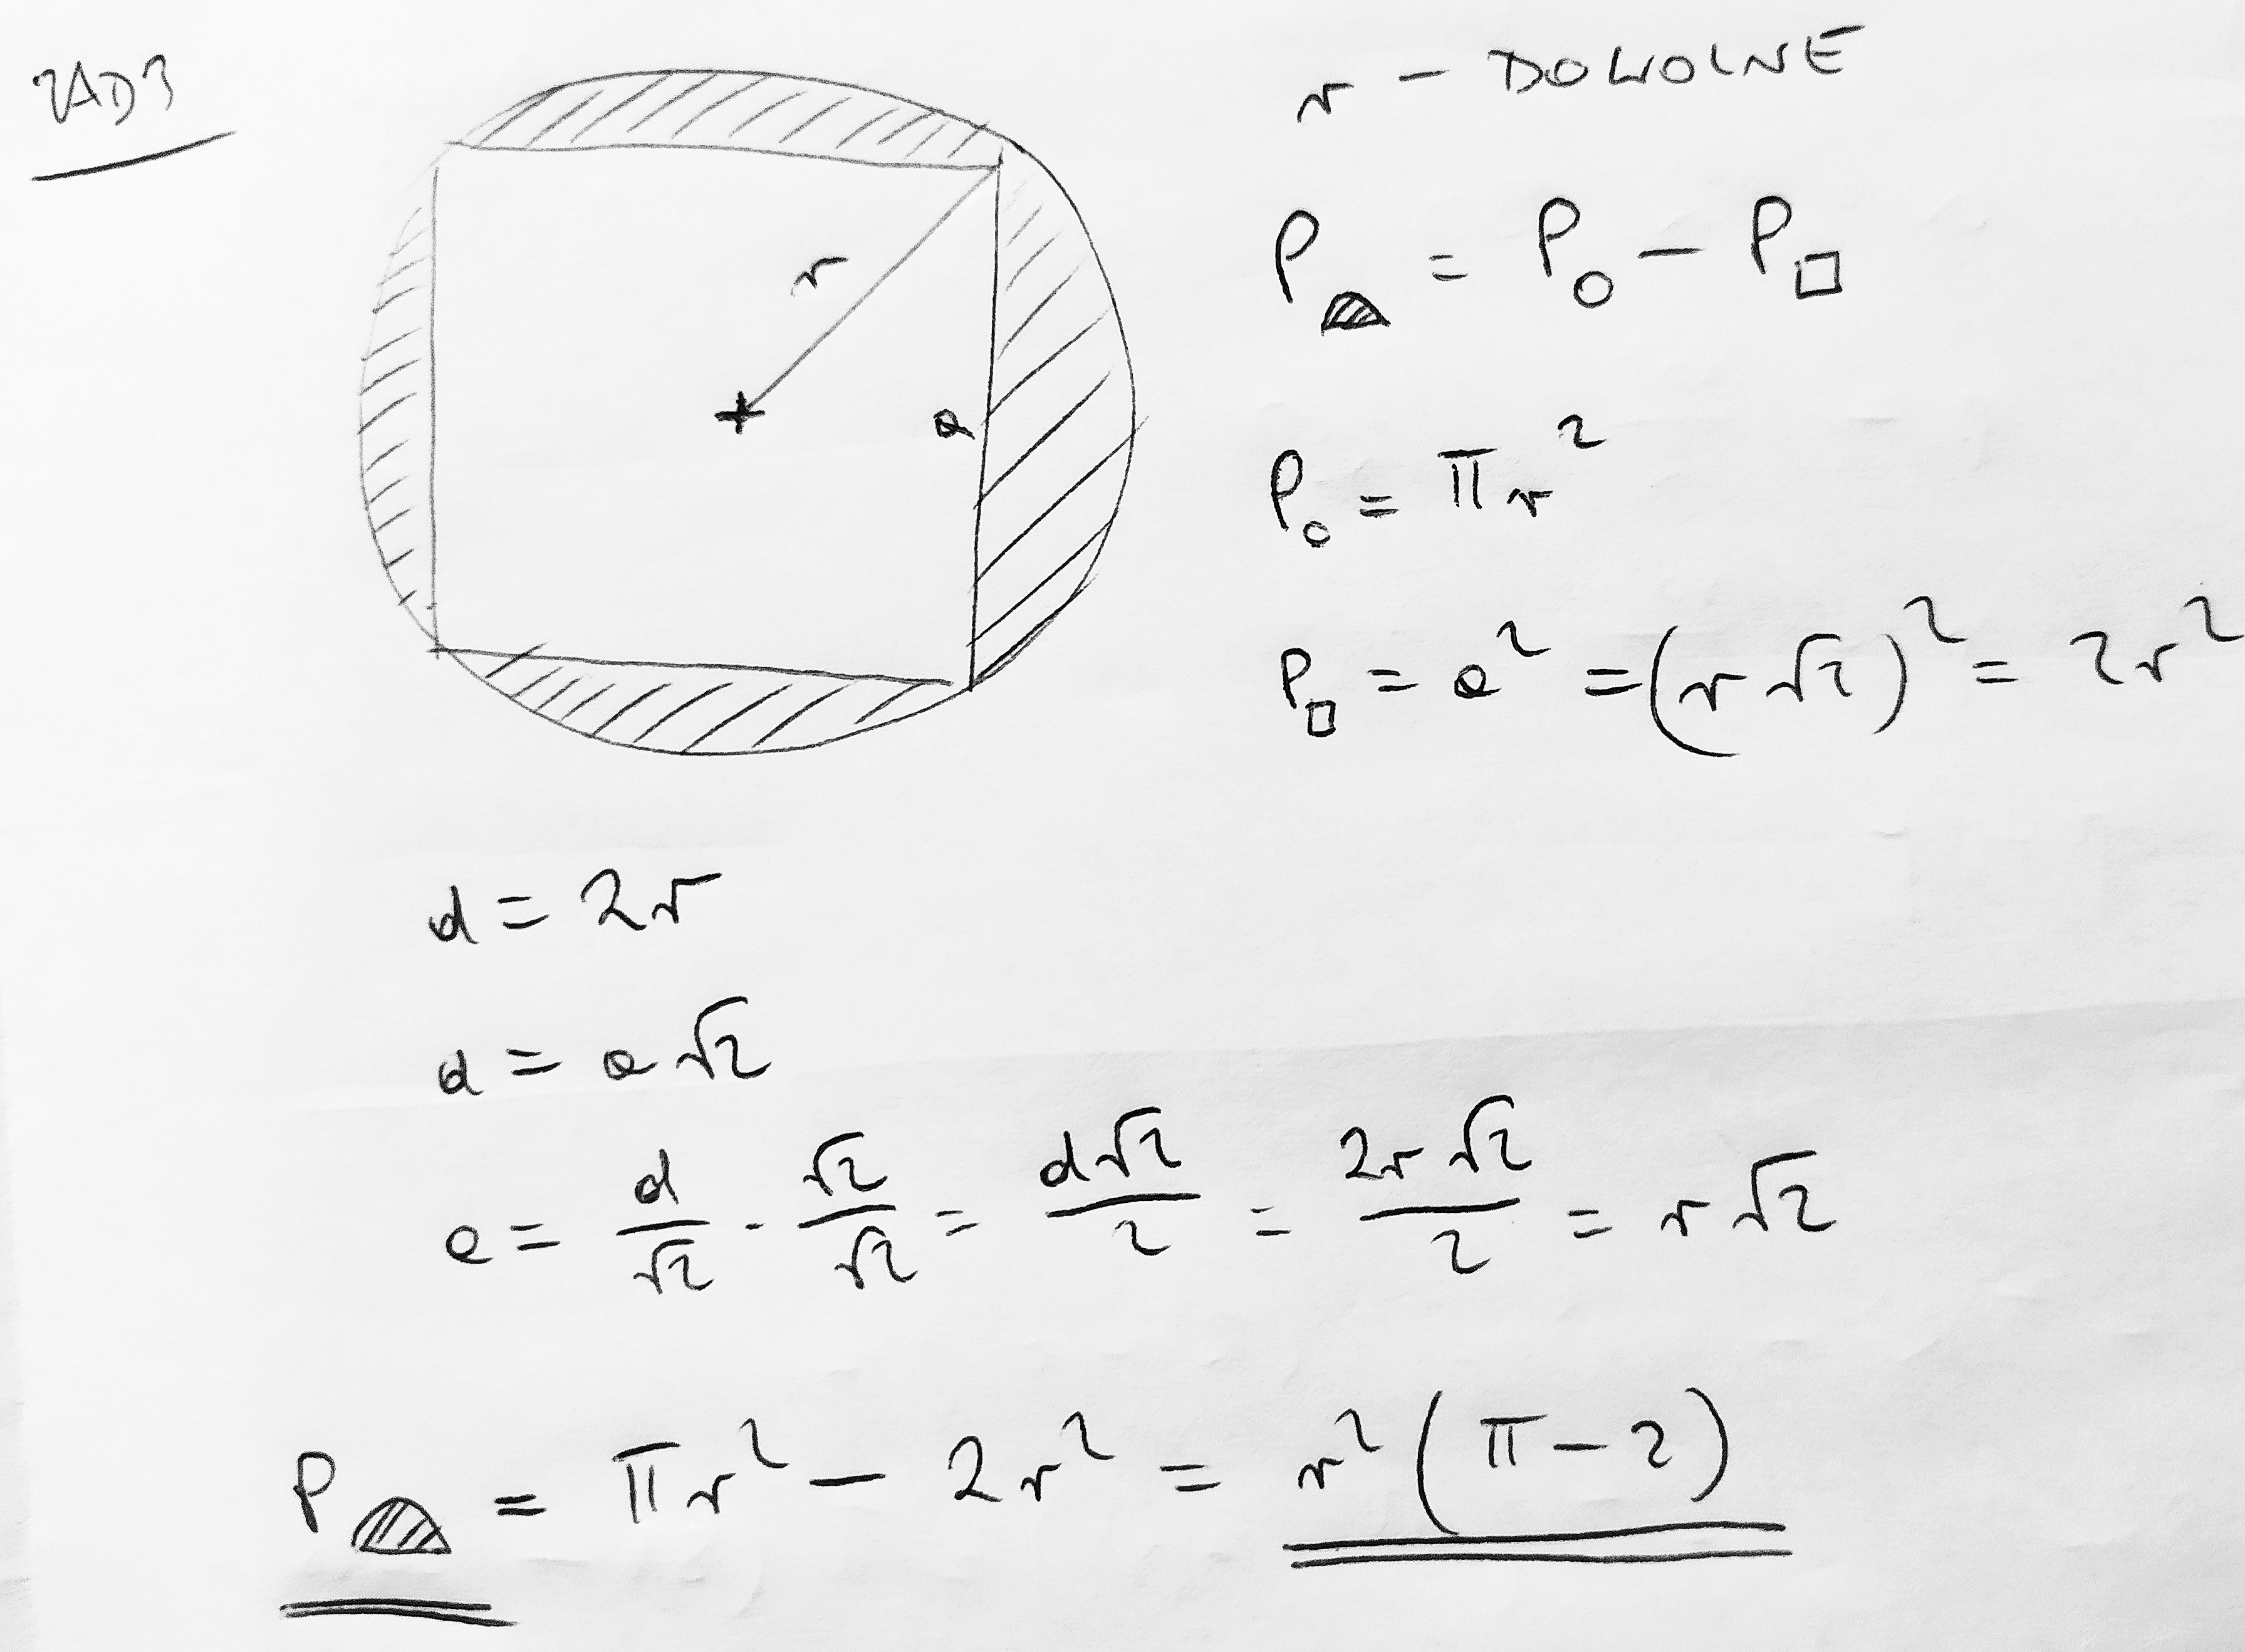 ZAD3
r - DOWOLNE
P⌓ = P○ - P□
r
a
P○ = πr²
P□ = a² = (r√2)² = 2r²
d = 2r
d = a√2
a = d/√2 · √2/√2 = d√2/2 = 2r√2/2 = r√2
P⌓ = πr² - 2r² = r²(π - 2)